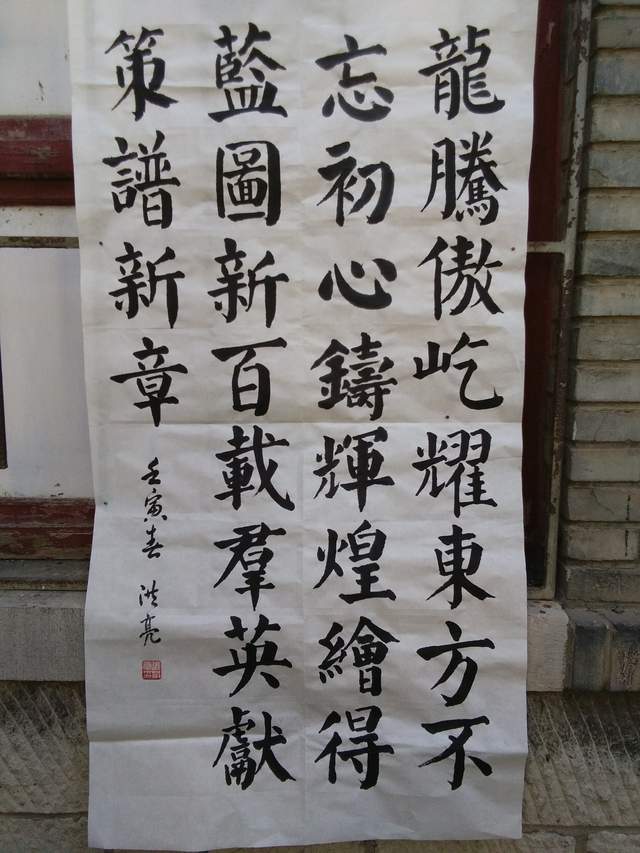 龍騰傲屹耀東方不
忘初心鑄輝煌繪得
藍圖新百載羣英獻
策譜新章
壬寅春 洪亮